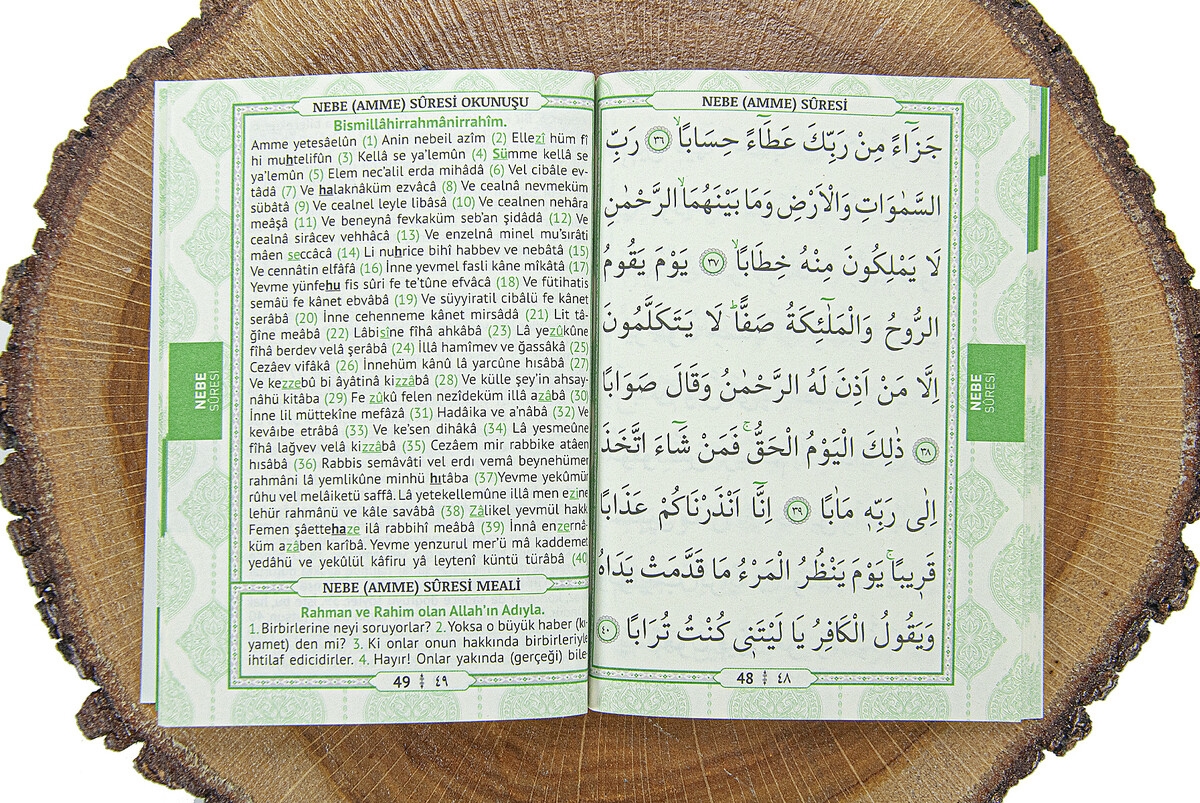 NEBE (AMME) SÛRESİ OKUNUŞU
Bismillâhirrahmânirrahîm.
Amme yetesâelûn (1) Anin nebeil azîm (2) Ellezî hüm fî
hi muhtelifûn (3) Kellâ se ya’lemûn (4) Sümme kellâ se
ya’lemûn (5) Elem nec’alil erda mihâdâ (6) Vel cibâle ev-
tâdâ (7) Ve halaknâküm ezvâcâ (8) Ve cealnâ nevmeküm
sübâtâ (9) Ve cealnel leyle libâsâ (10) Ve cealnen nehâra
meâşâ (11) Ve beneynâ fevkaküm seb’an şidâdâ (12) Ve
cealnâ sirâcev vehhâcâ (13) Ve enzelnâ minel mu’sırâti
mâen seccâcâ (14) Li nuhrice bihî habbev ve nebâtâ (15)
Ve cennâtin elfâfâ (16) İnne yevmel fasli kâne mîkâtâ (17)
Yevme yünfehu fis sûri fe te’tûne efvâcâ (18) Ve fütihatis
semâü fe kânet ebvâbâ (19) Ve süyyiratil cibâlü fe kânet
serâbâ (20) İnne cehenneme kânet mirsâdâ (21) Lit tâ-
ğîne meâbâ (22) Lâbisîne fîhâ ahkâbâ (23) Lâ yezûkûne
fîhâ berdev velâ şerâbâ (24) İllâ hamîmev ve ğassâkâ (25)
Cezâev vifâkâ (26) İnnehüm kânû lâ yarcûne hısâbâ (27)
Ve kezzebû bi âyâtinâ kizzâbâ (28) Ve külle şey’in ahsay-
nâhü kitâba (29) Fe zûkû felen nezîdeküm illâ azâbâ (30)
İnne lil müttekîne mefâzâ (31) Hadâika ve a’nâbâ (32) Ve
kevâıbe etrâbâ (33) Ve ke’sen dihâkâ (34) Lâ yesmeûne
fîhâ lağvev velâ kizzâbâ (35) Cezâem mir rabbike atâen
hısâbâ (36) Rabbis semâvâti vel erdı vemâ beynehümer
rahmâni lâ yemlikûne minhü hıtâba (37)Yevme yekûmür
rûhu vel melâiketü saffâ. Lâ yetekellemûne illâ men ezine
lehür rahmânü ve kâle savâbâ (38) Zâlikel yevmül hakk
Femen şâettehaze ilâ rabbihî meâbâ (39) İnnâ enzernâ
küm azâben karîbâ. Yevme yenzurul mer’ü mâ kaddemet
yedâhü ve yekûlül kâfiru yâ leytenî küntü türâbâ (40)
NEBE (AMME) SÛRESİ MEALİ
Rahman ve Rahim olan Allah’ın Adıyla.
1. Birbirlerine neyi soruyorlar? 2. Yoksa o büyük haber (kı-
yamet) den mi? 3. Ki onlar onun hakkında birbirleriyle
ihtilaf edicidirler. 4. Hayır! Onlar yakında (gerçeği) bile-
49 ٤٩
NEBE SÛRESİ
NEBE (AMME) SÛRESİ
جَزَٓاءً مِنْ رَبِّكَ عَطَٓاءً حِسَابًاۙ ﴿٣٦﴾ رَبِّ
السَّمٰوَاتِ وَالْاَرْضِ وَمَا بَيْنَهُمَا الرَّحْمٰنِ
لَا يَمْلِكُونَ مِنْهُ خِطَابًاۙ ﴿٣٧﴾ يَوْمَ يَقُومُ
الرُّوحُ وَالْمَلٰٓئِكَةُ صَفًّاۜ لَا يَتَكَلَّمُونَ
اِلَّا مَنْ اَذِنَ لَهُ الرَّحْمٰنُ وَقَالَ صَوَابًا
﴿٣٨﴾ ذٰلِكَ الْيَوْمُ الْحَقُّۚ فَمَنْ شَٓاءَ اتَّخَذَ
اِلٰى رَبِّه۪ مَاٰبًا ﴿٣٩﴾ اِنَّٓا اَنْذَرْنَاكُمْ عَذَابًا
قَر۪يبًاۚ يَوْمَ يَنْظُرُ الْمَرْءُ مَا قَدَّمَتْ يَدَاهُ
وَيَقُولُ الْكَافِرُ يَا لَيْتَن۪ى كُنْتُ تُرَابًا ﴿٤٠﴾
48 ٤٨
NEBE SÛRESİ